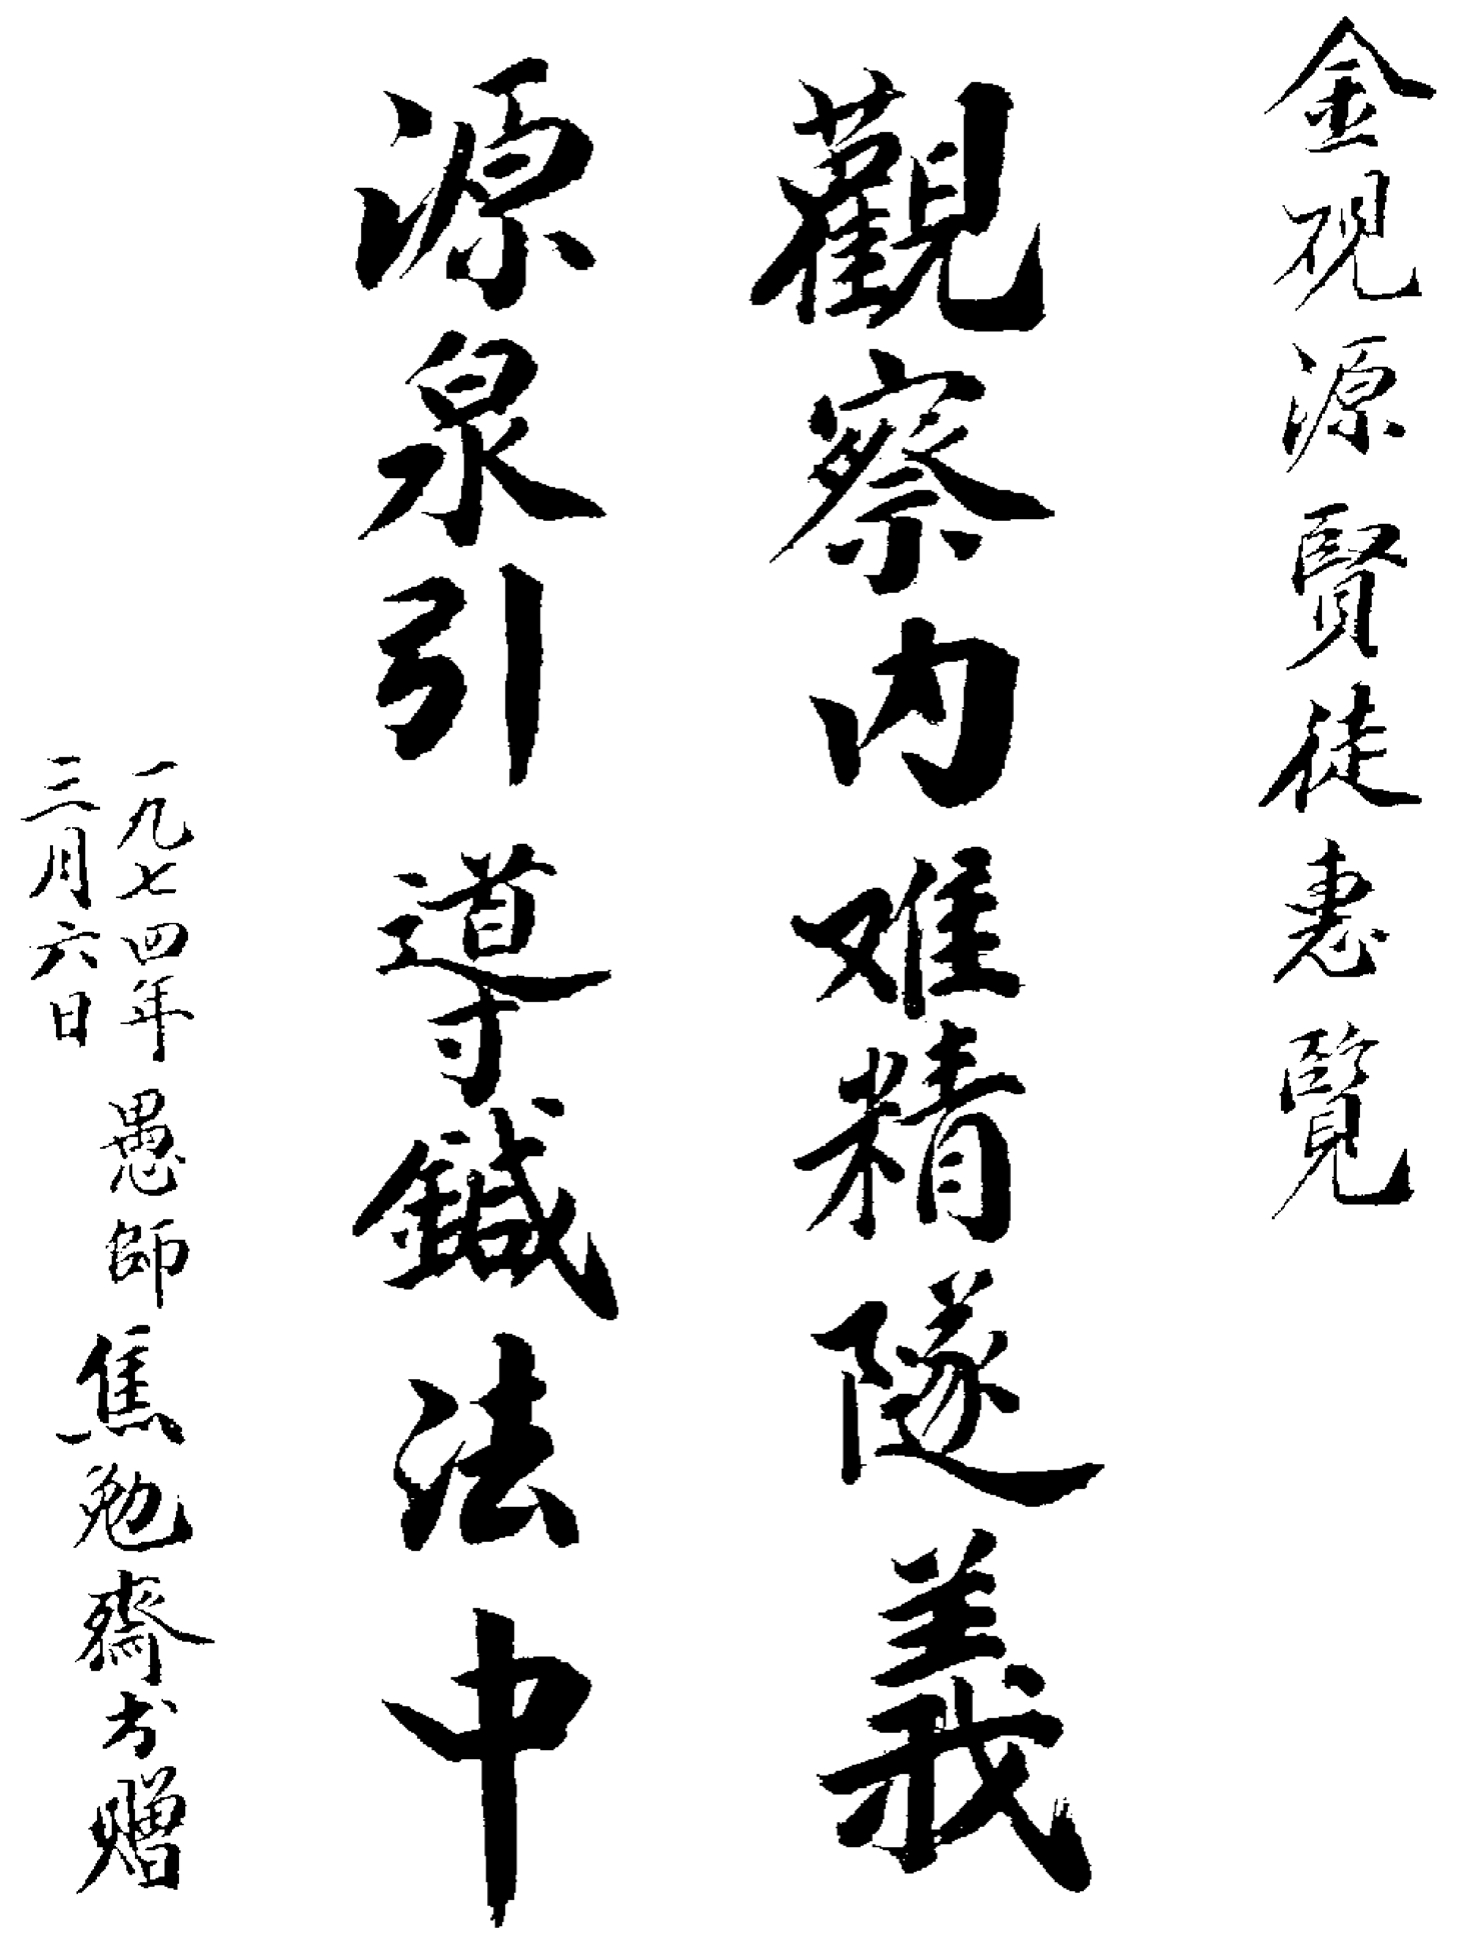 金观源賢徒惠覽
觀察内难精隧義
源泉引導鍼法中
一九七四年
三月六日
愚師焦勉齋书赠